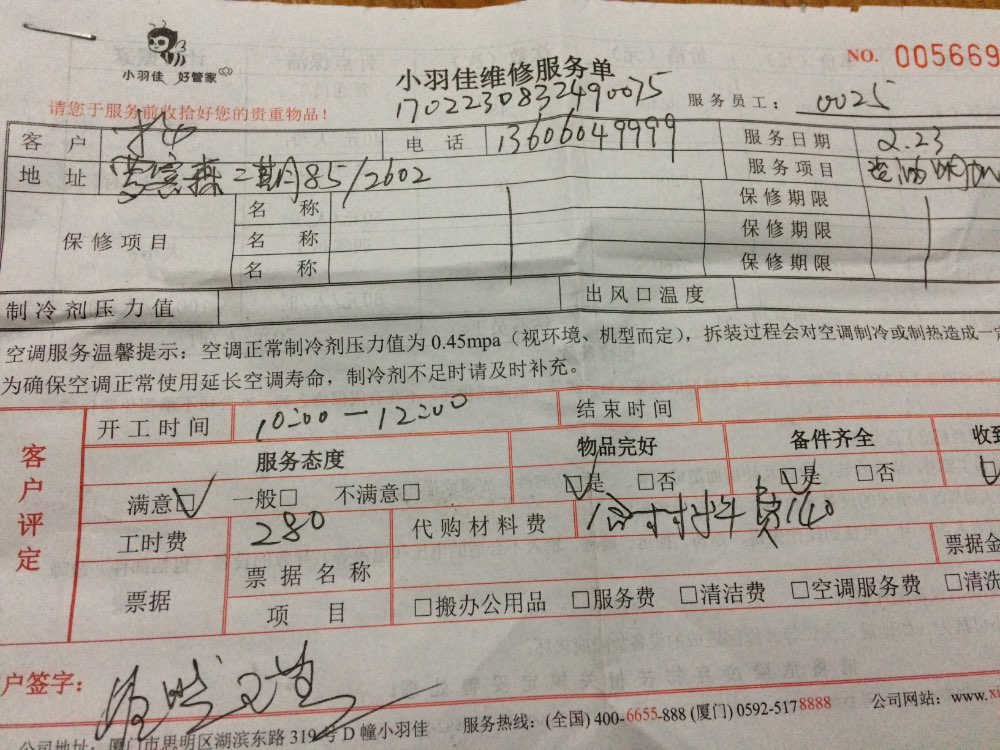 小羽佳 好管家
NO. 005669
小羽佳维修服务单
17022308332490075
服务员工: 0025
请您于服务前收拾好您的贵重物品!
客户 电话 13606049999 服务日期 2.23
地址 二期85/2602 服务项目
保修项目 名称 保修期限
名称 保修期限
名称 保修期限
制冷剂压力值 出风口温度
空调服务温馨提示:空调正常制冷剂压力值为 0.45mpa(视环境、机型而定),拆装过程会对空调制冷或制热造成一定
为确保空调正常使用延长空调寿命,制冷剂不足时请及时补充。
客户评定
开工时间 10:00-12:00 结束时间
服务态度 物品完好 备件齐全 收到
满意□ 一般□ 不满意□ □是 □否 □是 □否
工时费 280 代购材料费 材料费140
票据 票据名称 票据金
项目 □搬办公用品 □服务费 □清洁费 □空调服务费 □清洗
户签字:
公司地址:厦门市思明区湖滨东路 319 号 D 幢小羽佳 服务热线:(全国) 400-6655-888 (厦门) 0592-5178888 公司网站:www.